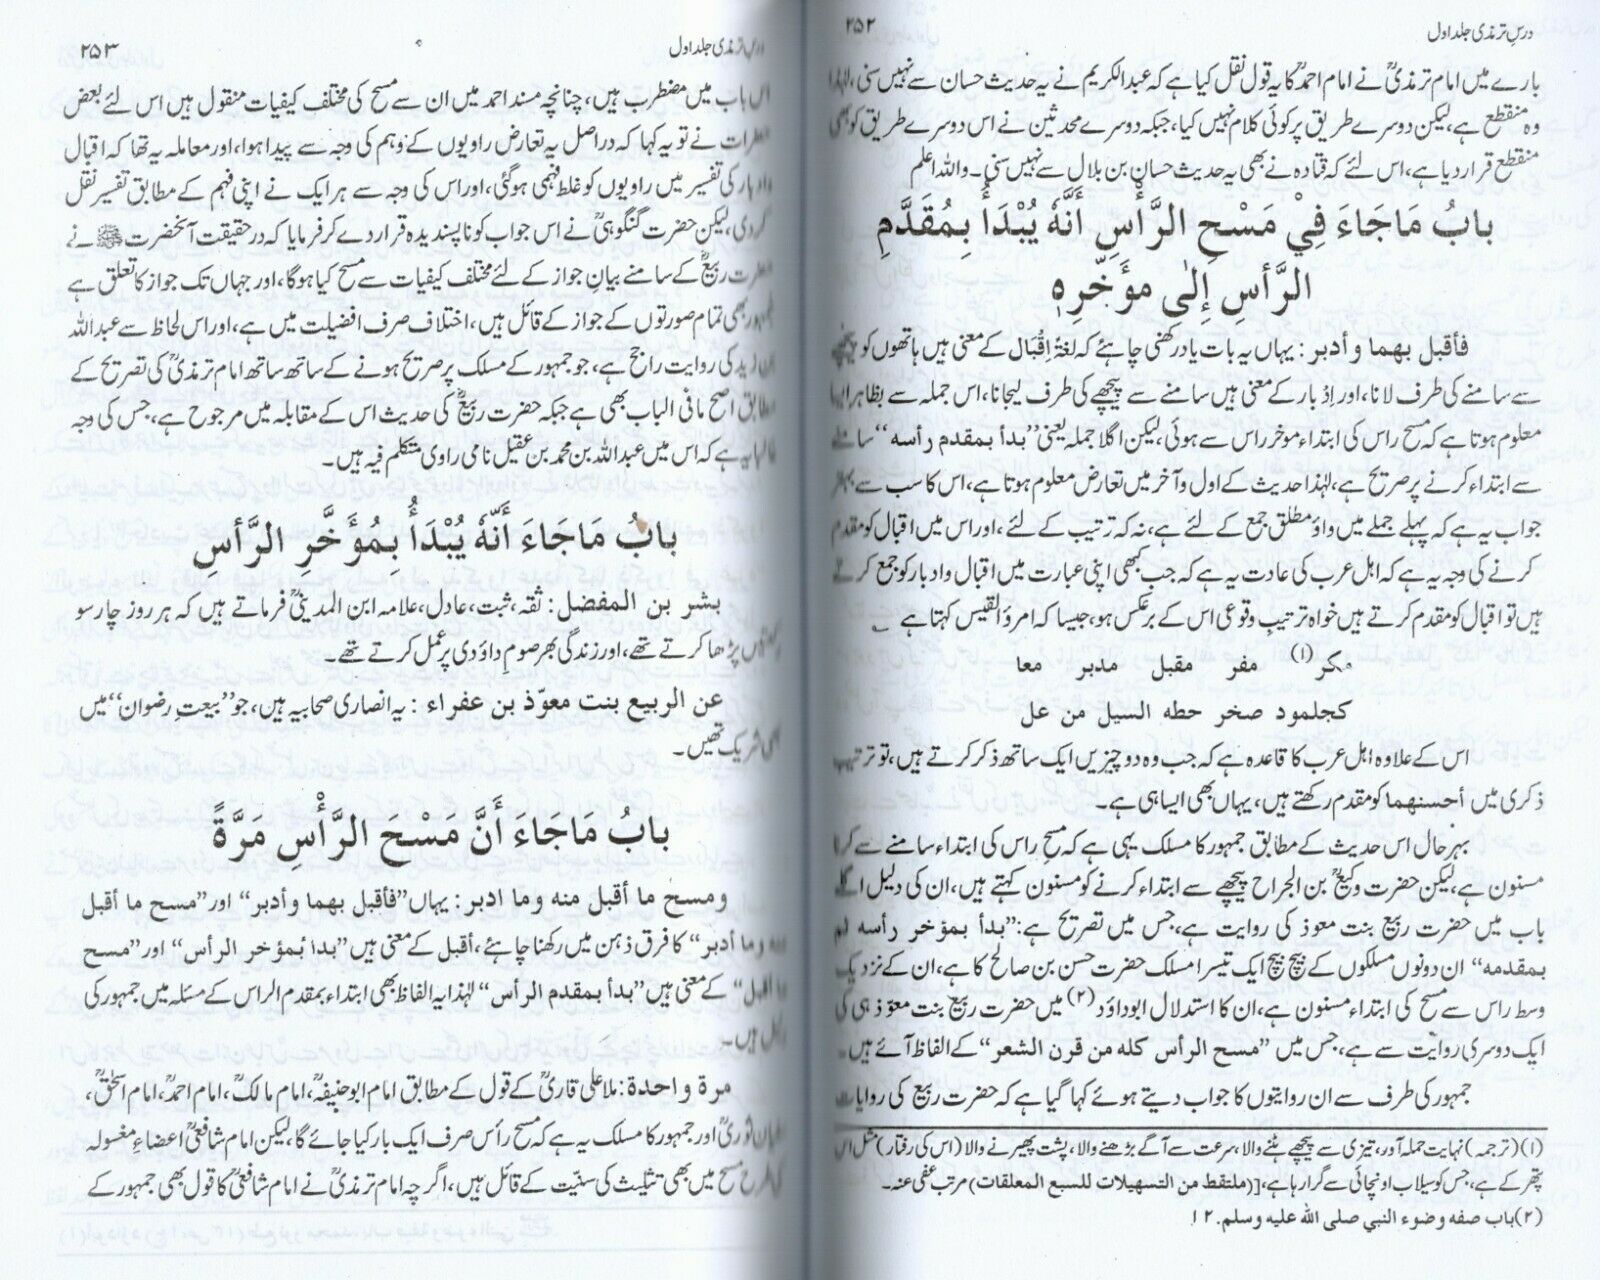 درسِ ترمذی جلد اول
۲۵۲
بارے میں امام ترمذیؒ نے امام احمدؒ کا یہ قول نقل کیا ہے کہ عبدالکریم نے یہ حدیث حسان سے نہیں سنی، لہٰذا
وہ منقطع ہے، لیکن دوسرے طریق پر کوئی کلام نہیں کیا، جبکہ دوسرے محدثین نے اس دوسرے طریق کو بھی
منقطع قرار دیا ہے، اس لئے کہ قتادہ نے بھی یہ حدیث حسان بن بلال سے نہیں سنی۔ واللہ اعلم
بابُ مَاجَاءَ فِيْ مَسْحِ الرَّأْسِ أَنَّهٗ يُبْدَأُ بِمُقَدَّمِ
الرَّأسِ إِلٰى مؤَخّرِهٖ
فأقبل بهما وأدبر : یہاں یہ بات یاد رکھنی چاہئے کہ لغۃً اِقبال کے معنی ہیں ہاتھوں کو پیچھے
سے سامنے کی طرف لانا، اور اِدْبار کے معنی ہیں سامنے سے پیچھے کی طرف لیجانا، اس جملہ سے بظاہر ایسا
معلوم ہوتا ہے کہ مسح راس کی ابتداء موخر راس سے ہوئی، لیکن اگلا جملہ یعنی ”بدأ بمقدم رأسه“ سامنے
سے ابتداء کرنے پر صریح ہے، لہٰذا حدیث کے اول و آخر میں تعارض معلوم ہوتا ہے، اس کا سب سے بہتر
جواب یہ ہے کہ پہلے جملے میں واؤ مطلق جمع کے لئے ہے، نہ کہ ترتیب کے لئے، اور اس میں اقبال کو مقدم
کرنے کی وجہ یہ ہے کہ اہل عرب کی عادت یہ ہے کہ جب کبھی اپنی عبارت میں اقبال و ادبار کو جمع کرتے
ہیں تو اقبال کو مقدم کرتے ہیں خواہ ترتیب وقوعی اس کے برعکس ہو، جیسا کہ امرؤ القیس کہتا ہے ؎
مكر(۱) مفر مقبل مدبر معا
كجلمود صخر حطه السيل من عل
اس کے علاوہ اہل عرب کا قاعدہ ہے کہ جب وہ دو چیزیں ایک ساتھ ذکر کرتے ہیں، تو ترتیب
ذکری میں أحسنهما کو مقدم رکھتے ہیں، یہاں بھی ایسا ہی ہے۔
بہر حال اس حدیث کے مطابق جمہور کا مسلک یہی ہے کہ مسح راس کی ابتداء سامنے سے کرنا
مسنون ہے، لیکن حضرت وکیعؒ بن الجراح پیچھے سے ابتداء کرنے کو مسنون کہتے ہیں، ان کی دلیل اگلے
باب میں حضرت ربیع بنت معوذ کی روایت ہے، جس میں تصریح ہے: ”بدأ بمؤخر رأسه ثم
بمقدمه“ ان دونوں مسلکوں کے بیچ بیچ ایک تیسرا مسلک حضرت حسن بن صالح کا ہے، ان کے نزدیک
وسط راس سے مسح کی ابتداء مسنون ہے، ان کا استدلال ابوداؤد(۲) میں حضرت ربیع بنت معوّذ ہی کی
ایک دوسری روایت سے ہے، جس میں ”مسح الرأس كله من قرن الشعر“ کے الفاظ آئے ہیں۔
جمہور کی طرف سے ان روایتوں کا جواب دیتے ہوئے کہا گیا ہے کہ حضرت ربیع کی روایات
(۱) (ترجمہ) نہایت حملہ آور، تیزی سے پیچھے ہٹنے والا، سرعت سے آگے بڑھنے والا، پشت پھیرنے والا (اس کی رفتار) مثل اس
پتھر کے ہے، جس کو سیلاب اونچائی سے گرا رہا ہے، [(ملتقط من التسهيلات للسبع المعلقات) مرتب عفی عنہ۔
(۲) باب صفه وضوء النبي صلى الله عليه وسلم. ۱۲
درسِ ترمذی جلد اول
۲۵۳
اس باب میں مضطرب ہیں، چنانچہ مسند احمد میں ان سے مسح کی مختلف کیفیات منقول ہیں اس لئے بعض
حضرات نے تو یہ کہا کہ دراصل یہ تعارض راویوں کے وہم کی وجہ سے پیدا ہوا، اور معاملہ یہ تھا کہ اقبال
وادبار کی تفسیر میں راویوں کو غلط فہمی ہوگئی، اور اس کی وجہ سے ہر ایک نے اپنی فہم کے مطابق تفسیر نقل
کردی، لیکن حضرت گنگوہیؒ نے اس جواب کو ناپسندیدہ قرار دے کر فرمایا کہ درحقیقت آنحضرت ﷺ نے
حضرت ربیعؓ کے سامنے بیانِ جواز کے لئے مختلف کیفیات سے مسح کیا ہوگا، اور جہاں تک جواز کا تعلق ہے
جمہور بھی تمام صورتوں کے جواز کے قائل ہیں، اختلاف صرف افضلیت میں ہے، اور اس لحاظ سے عبداللہ
بن زید کی روایت راجح ہے، جو جمہور کے مسلک پر صریح ہونے کے ساتھ ساتھ امام ترمذیؒ کی تصریح کے
مطابق اصح مافی الباب بھی ہے جبکہ حضرت ربیعؓ کی حدیث اس کے مقابلہ میں مرجوح ہے، جس کی وجہ
غالباً یہ ہے کہ اس میں عبداللہ بن محمد بن عقیل نامی راوی متکلم فیہ ہیں۔
بابُ مَاجَاءَ أَنّهٗ يُبْدَأُ بِمُؤَخَّرِ الرَّأسِ
بشر بن المفضل : ثقہ، ثبت، عادل، علامہ ابن المدینیؒ فرماتے ہیں کہ ہر روز چار سو
رکعتیں پڑھا کرتے تھے، اور زندگی بھر صوم داؤدی پر عمل کرتے تھے۔
عن الربيع بنت معوّذ بن عفراء : یہ انصاری صحابیہ ہیں، جو ”بیعتِ رضوان“ میں
بھی شریک تھیں۔
بابُ مَاجَاءَ أَنَّ مَسْحَ الرَّأْسِ مَرَّةً
ومسح ما أقبل منه وما ادبر : یہاں ”فأقبل بهما وأدبر“ اور ”مسح ما أقبل
منه وما أدبر“ کا فرق ذہن میں رکھنا چاہئے، أقبل کے معنی ہیں ”بدا بمؤخر الرأس“ اور ”مسح
ما اقبل“ کے معنی ہیں ”بدأ بمقدم الرأس“ لہٰذا یہ الفاظ بھی ابتداء بمقدم الراس کے مسئلہ میں جمہور کی
دلیل ہیں۔
مرة واحدة : ملا علی قاریؒ کے قول کے مطابق امام ابوحنیفہؒ، امام مالکؒ، امام احمدؒ، امام اسحٰقؒ،
سفیان ثوریؒ اور جمہور کا مسلک یہ ہے کہ مسح رأس صرف ایک بار کیا جائے گا، لیکن امام شافعیؒ اعضاءِ مغسولہ
کی طرح مسح میں بھی تثلیث کی سنیّت کے قائل ہیں، اگرچہ امام ترمذیؒ نے امام شافعیؒ کا قول بھی جمہور کے